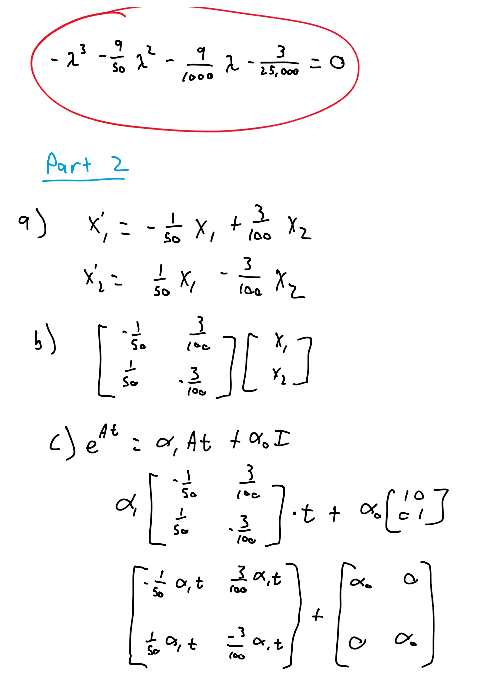 -λ³ - 9/50 λ² - 9/1000 λ - 3/25,000 = 0
Part 2
a) x₁' = -1/50 x₁ + 3/100 x₂
x₂' = 1/50 x₁ - 3/100 x₂
b) [ -1/50 3/100 ; 1/50 -3/100 ] [ x₁ ; x₂ ]
c) e^{At} = α₁At + α₀I
α₁ [ -1/50 3/100 ; 1/50 -3/100 ] · t + α₀ [ 1 0 ; 0 1 ]
[ -1/50 α₁t 3/100 α₁t ; 1/50 α₁t -3/100 α₁t ] + [ α₀ 0 ; 0 α₀ ]